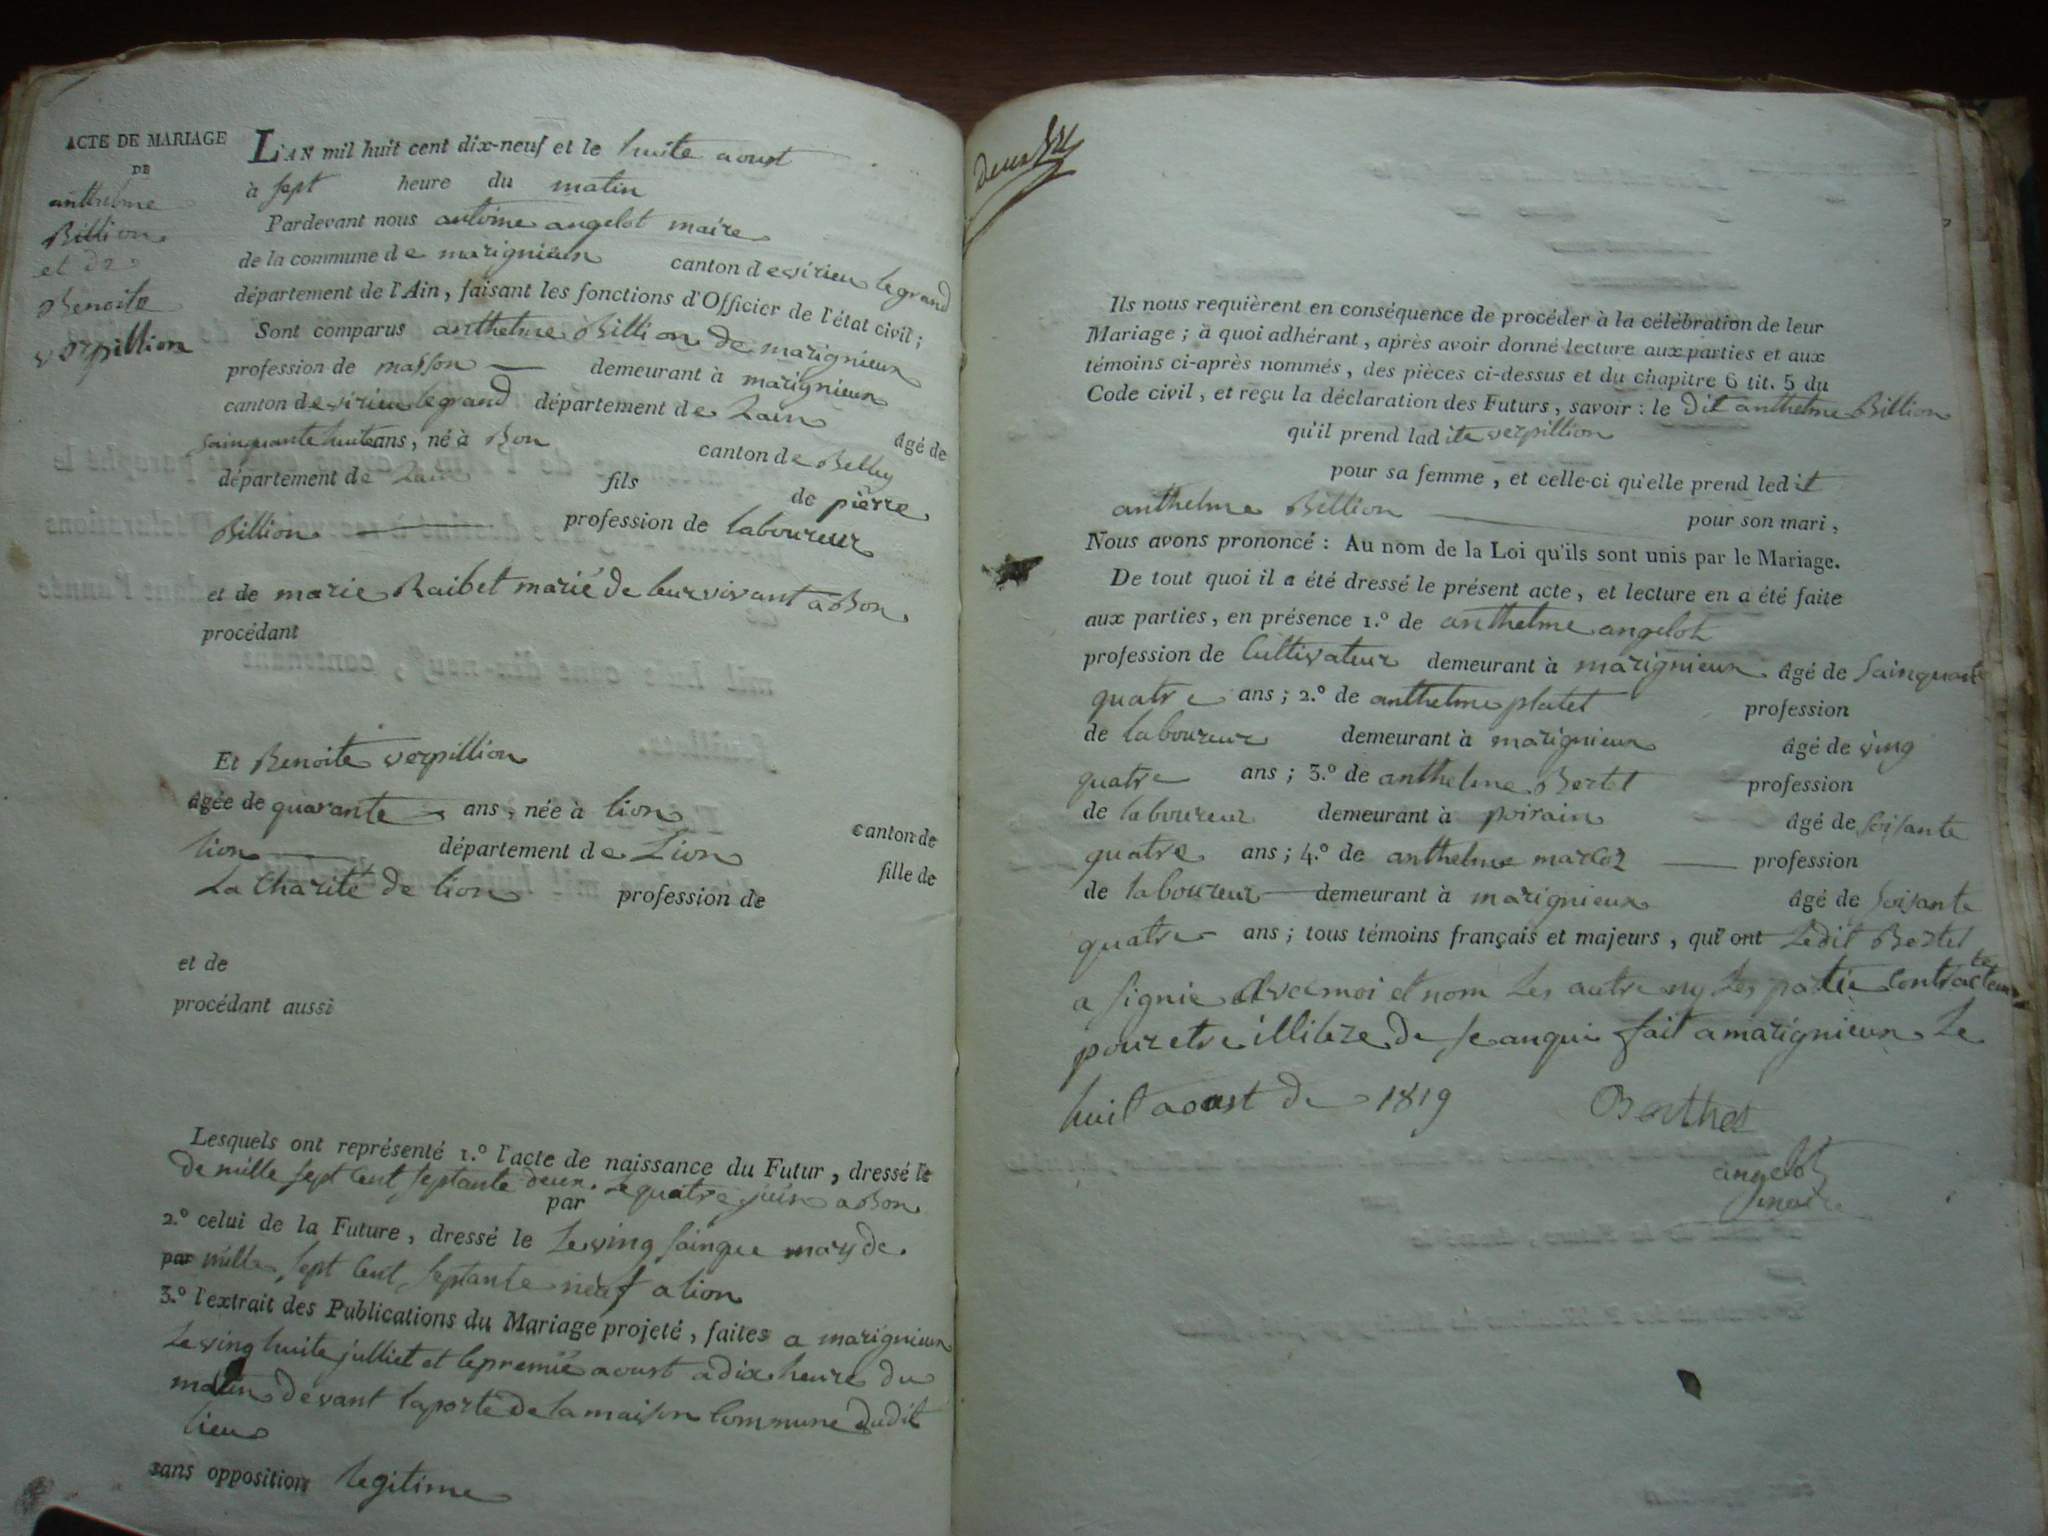 ACTE DE MARIAGE
DE
anthelme
Billion
et de
Benoite
verpillion
L'AN mil huit cent dix-neuf et le huite aoust
à sept heure du matin
Pardevant nous antoine angelot maire
de la commune de marignieux canton de virieu legrand
département de l'Ain, faisant les fonctions d'Officier de l'état civil;
Sont comparus anthelme Billion de marignieux
profession de masson demeurant à marignieux
canton de virieu legrand département de Lain âgé de
sainquante huite ans, né à Bon canton de Belley
département de Lain fils de pierre
Billion profession de laboureur
et de marie Raibet marié de leur vivant a Bon
procédant
Et Benoite verpillion
âgée de quarante ans, née à lion canton de
lion département de Lion fille de
La Charité de lion profession de
et de
procédant aussi
Lesquels ont représenté 1.º l'acte de naissance du Futur, dressé le
de mille sept cent septante deux. Le quatre juin a Bon
par
2.º celui de la Future, dressé le Le ving sainque may de
par mille sept cent septante neuf a lion
3.º l'extrait des Publications du Mariage projeté, faites a marignieux
Le ving huite julliet et le premié aoust a dix heure du
matin devant la porte de la maison Commune dudit
lieu
sans opposition legitime
deux
Ils nous requièrent en conséquence de procéder à la célébration de leur
Mariage; à quoi adhérant, après avoir donné lecture aux parties et aux
témoins ci-après nommés, des pièces ci-dessus et du chapitre 6 tit. 5 du
Code civil, et reçu la déclaration des Futurs, savoir: le dit anthelme Billion
qu'il prend ladite verpillion
pour sa femme, et celle-ci qu'elle prend ledit
anthelme Billion pour son mari,
Nous avons prononcé: Au nom de la Loi qu'ils sont unis par le Mariage.
De tout quoi il a été dressé le présent acte, et lecture en a été faite
aux parties, en présence 1.º de anthelme angelot
profession de Cultivateur demeurant à marignieux âgé de sainquante
quatre ans; 2.º de anthelme platet profession
de laboureur demeurant à marignieux âgé de ving
quatre ans; 3.º de anthelme Bertet profession
de laboureur demeurant à poirain âgé de soisante
quatre ans; 4.º de anthelme marcoz profession
de laboureur demeurant à marignieux âgé de soisante
quatre ans; tous témoins français et majeurs, qui ont Ledit Bertet
a signie avec moi et nom Les autre ny Les partie Contractente
pour etre illitere de se anquis fait a marignieux Le
huit aoust de 1819 Berthet
angelot
maire